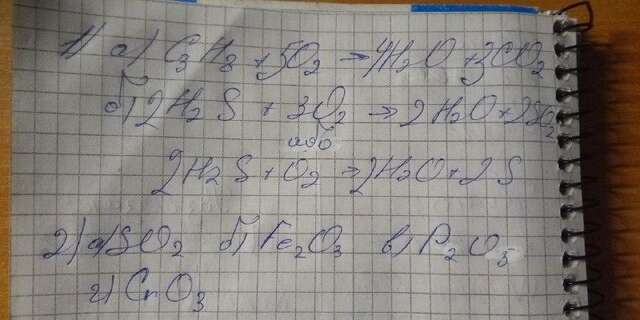 1) а) C₃H₈ + 5O₂ → 4H₂O + 3CO₂
б) 2H₂S + 3O₂ → 2H₂O + 2SO₂
або
2H₂S + O₂ → 2H₂O + 2S
2) а) SO₂ б) Fe₂O₃ в) P₂O₅
г) CrO₃